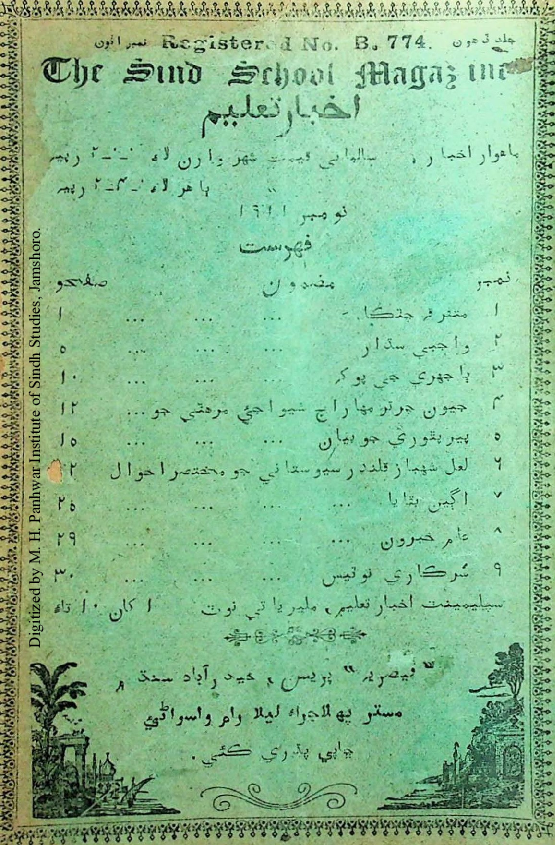 جلد ٽيهون Registered No. B. 774. نمبر اٺون
The Sind School Magazine
اخبار تعليم
ماهوار اخبار، سالياني قيمت شهر وارن لاءِ ٠-٠-٢ رپيہ
ٻاهر لاءِ ٠-٤-٢ رپيہ
نومبر ١٩١١
فهرست
نمبر مضمون صفحو
١ متفرقہ جٽڪا ... ... ١
٢ واجبي سڌار ... ... ٥
٣ ٻاجهري جي پوک ... ... ١٠
٤ جيون چرتر مهاراج شيواجي مرهٽي جو ... ١٢
٥ پير پٿوري جو بيان ... ... ١٥
٦ لعل شهباز قلندر سيوستاني جو مختصر احوال ٢
٧ اڳين بقايا ... ... ... ٢٥
٨ عام خبرون ... ... ... ٢٩
٩ سرڪاري نوٽيس ... ... ٣٠
سپليمينٽ اخبار تعليم، مليريا تي نوٽ ١ کان ١٠ تاءِ
"قيصريہ" پريس، حيدرآباد سنڌ ۾
مستر پهلاجراءِ ليلارام واسواڻي
ڇاپي پڌري ڪئي.
Digitized by M. H. Panhwar Institute of Sindh Studies, Jamshoro.